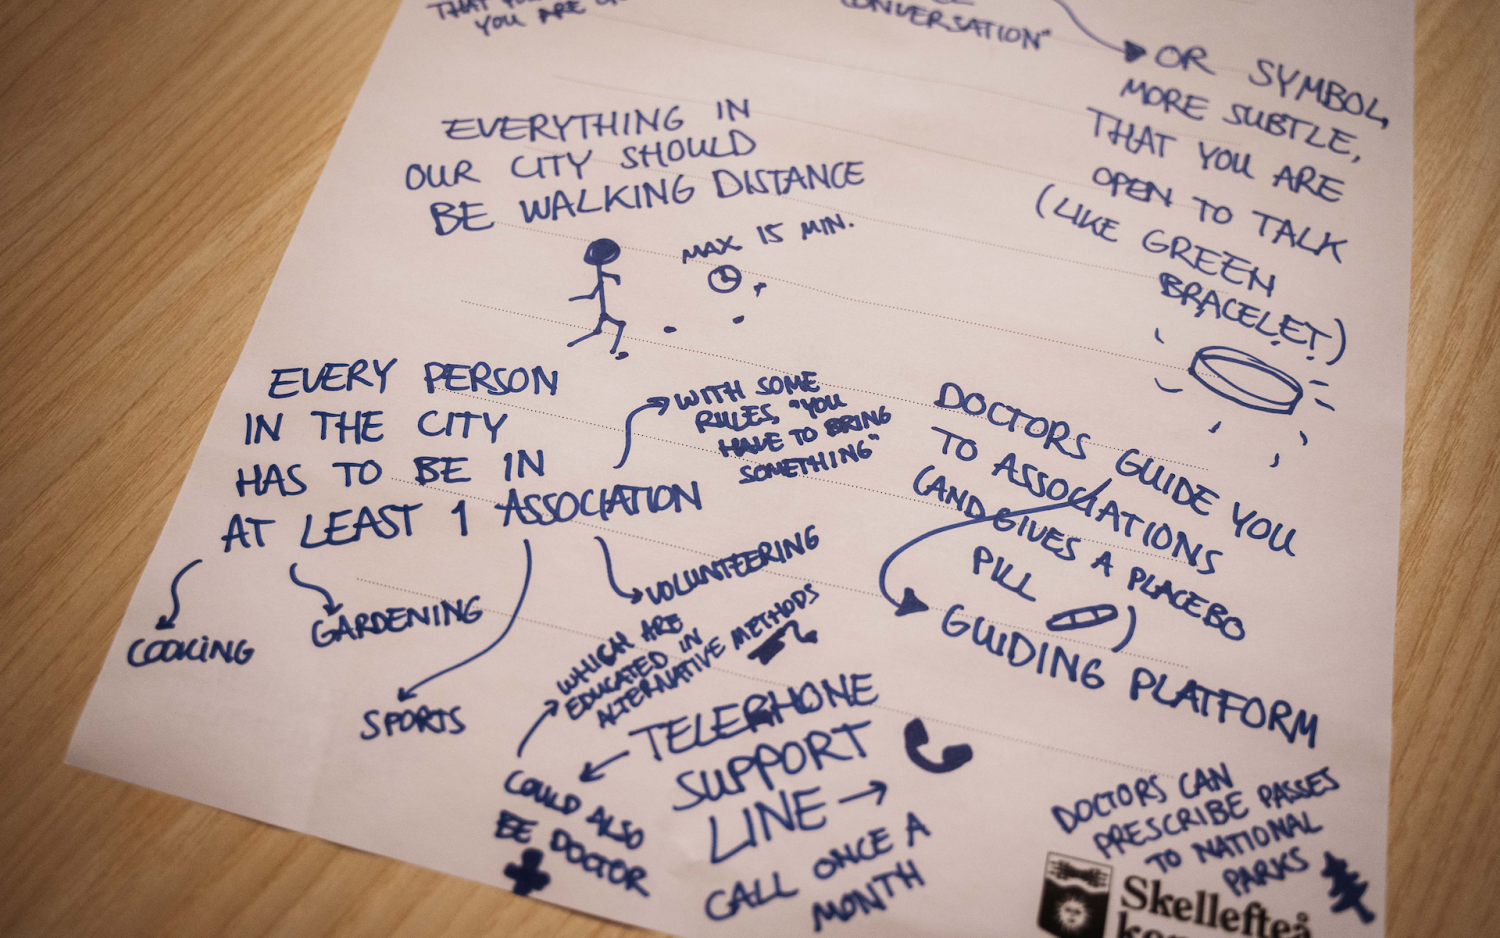 THAT YOU
YOU ARE
CONVERSATION"
OR SYMBOL,
MORE SUBTLE,
THAT YOU ARE
OPEN TO TALK
(LIKE GREEN
BRACELET)
EVERYTHING IN
OUR CITY SHOULD
BE WALKING DISTANCE
MAX 15 MIN.
EVERY PERSON
IN THE CITY
HAS TO BE IN
AT LEAST 1 ASSOCIATION
WITH SOME
RULES, "YOU
HAVE TO BRING
SOMETHING"
COOKING
GARDENING
SPORTS
VOLUNTEERING
DOCTORS GUIDE YOU
TO ASSOCIATIONS
(AND GIVES A PLACEBO
PILL )
GUIDING PLATFORM
WHICH ARE
EDUCATED IN
ALTERNATIVE METHODS
TELEPHONE
SUPPORT
LINE
CALL ONCE A
MONTH
COULD ALSO
BE DOCTOR
DOCTORS CAN
PRESCRIBE PASSES
TO NATIONAL
PARKS
Skellefteå